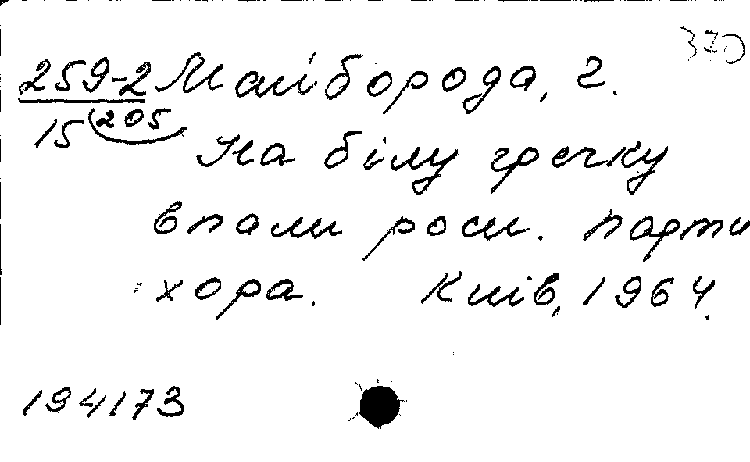 370
259-2 Майборода, Г.
15 (205
На білу гречку
впали роси. парти
хора. Київ, 1964.
194173